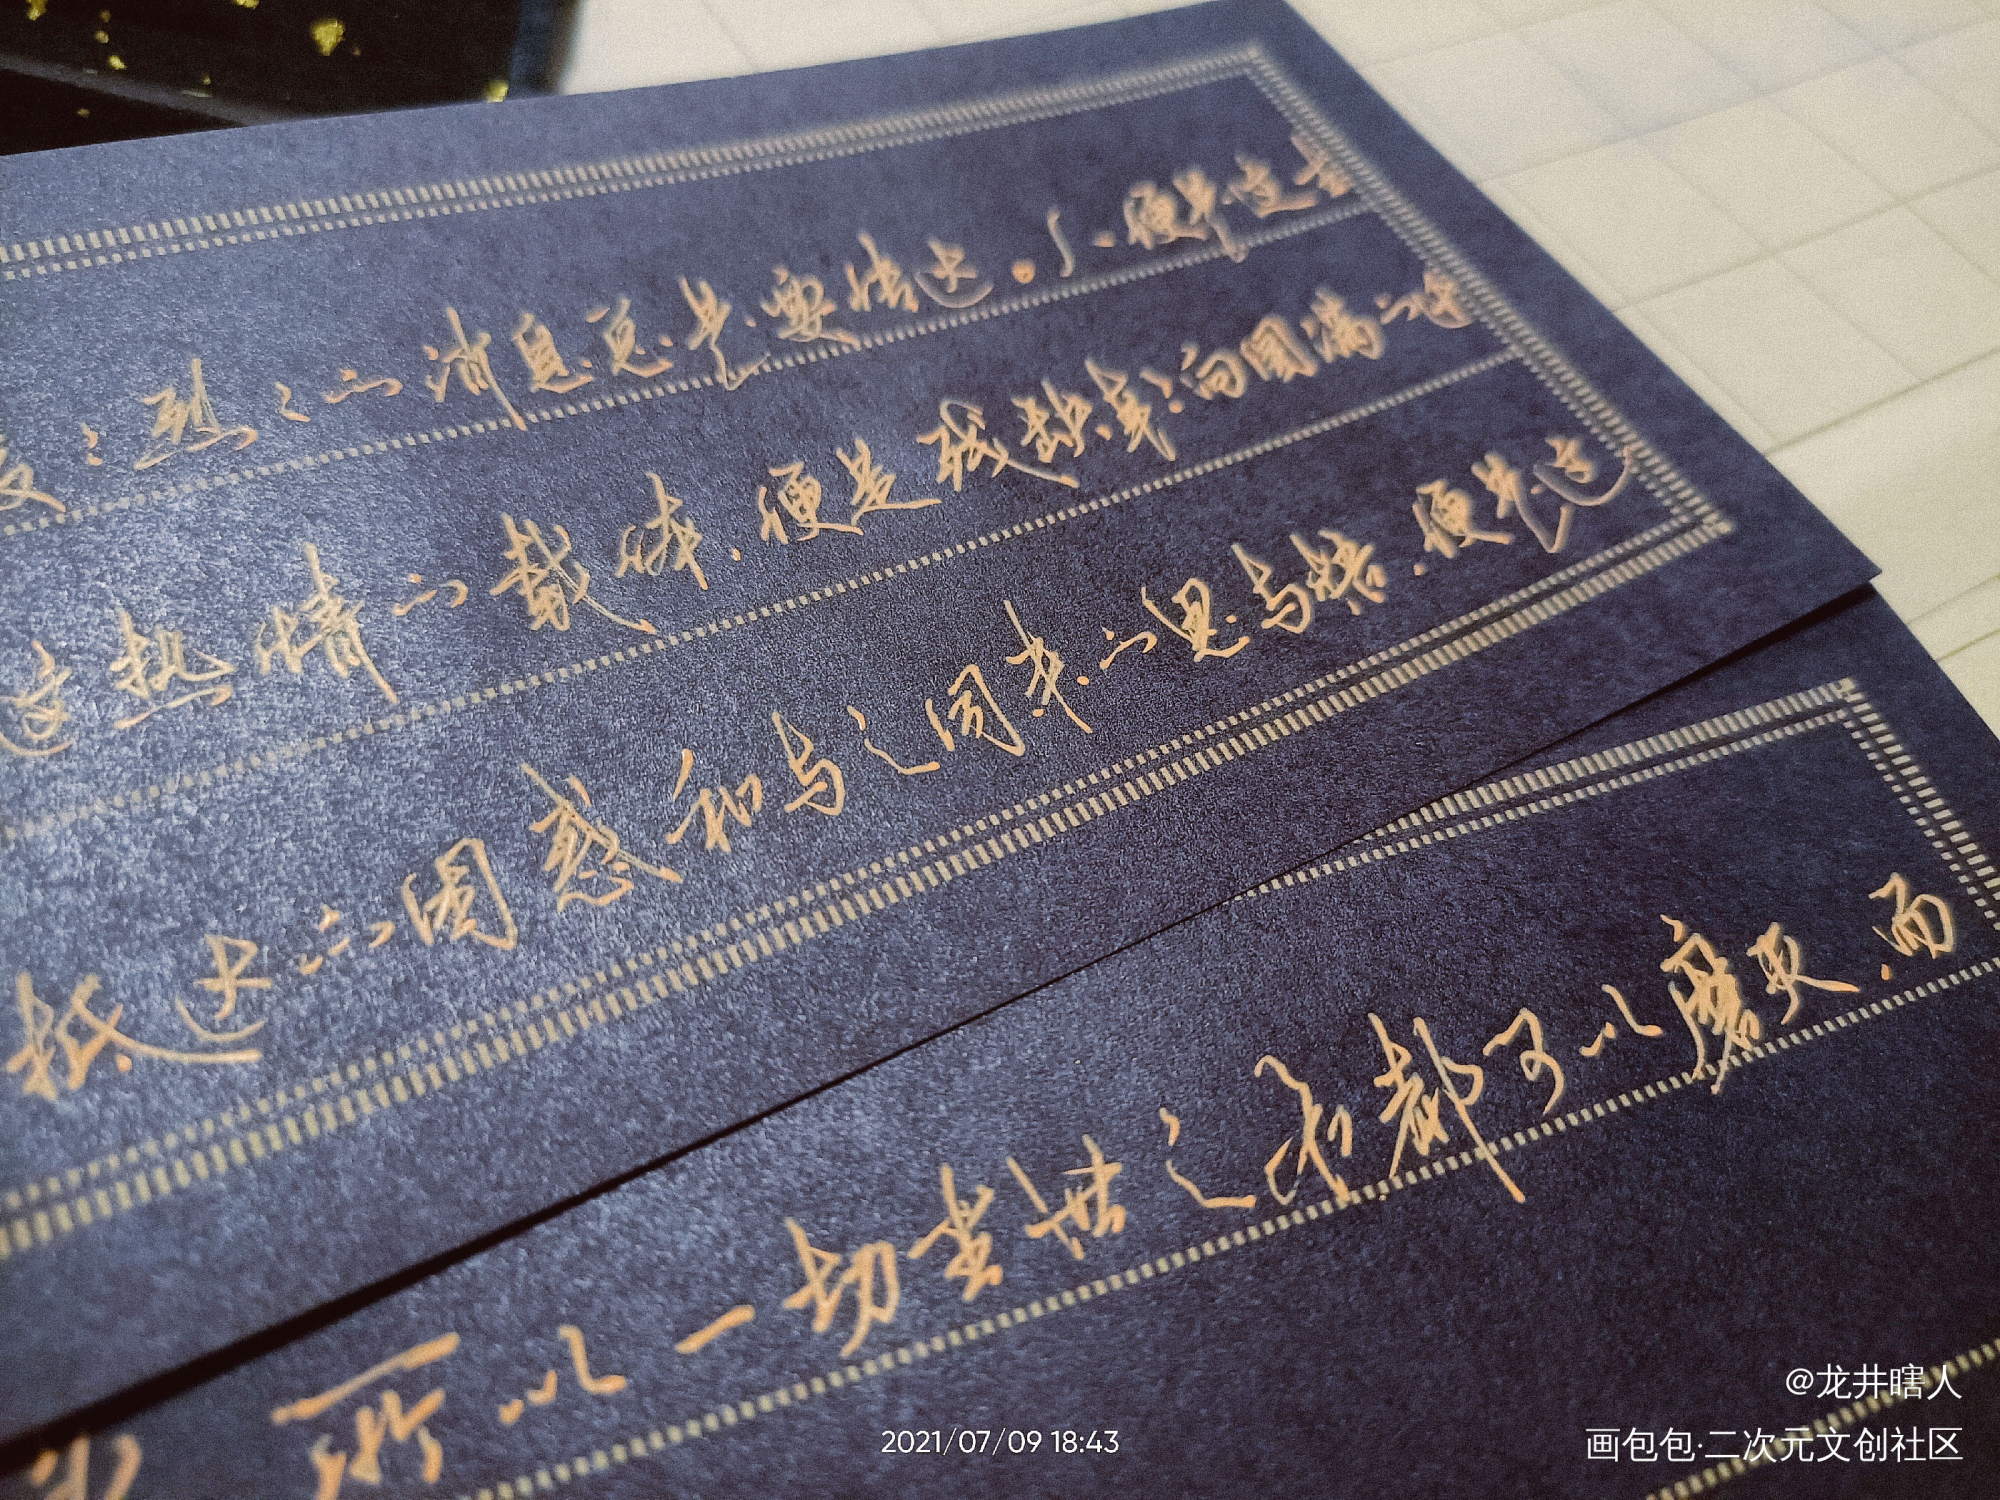 烈之的消息总是要传达。了、便是这
这热情的载体、便是残缺导向圆满的
抵达的困惑和与之同来的思与悟、便是这
所以一切尘世之乐都可以磨灭、而
2021/07/09 18:43
@龙井瞎人
画包包·二次元文创社区